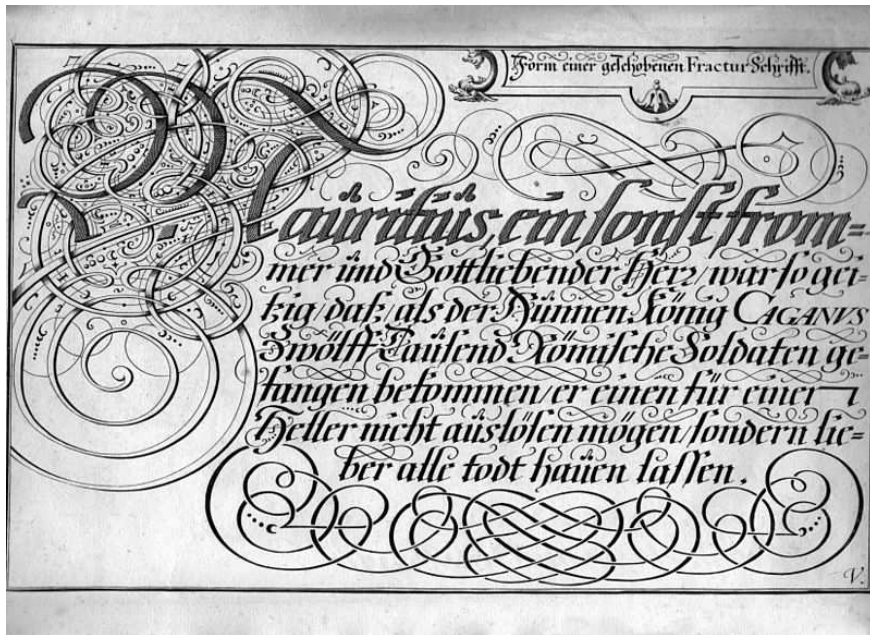 Form einer geschobenen Fractur Schrifft.
Mauritius, ein sonst from=
mer und Gottliebender Herz/ war so gei=
tzig/ daß/ als der Hünnen König CAGANVS
Zwölff Tausend Römische Soldaten ge=
fangen bekommen/ er einen für einen
Heller nicht auslösen mögen/ sondern lie=
ber alle todt hauen lassen.
V.